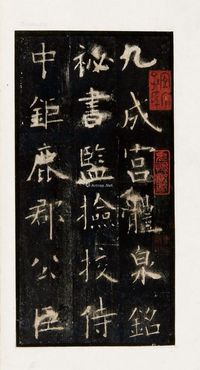 九成宮醴泉銘
秘書監撿挍侍
中鉅鹿郡公臣